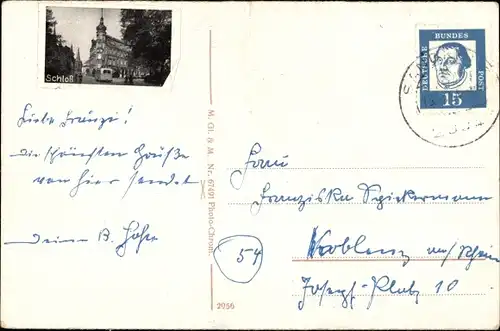 Schloß
Liebe Fränze!
Die schönsten Grüße
von hier sendet
Deine B.
M. Gl. & M. Nr. 67491 Photo-Chrom.
2956
DEUTSCHE BUNDES POST
15
Frau
Franziska Spickermann
54
Koblenz am/Rhein
Josefs-Platz 10